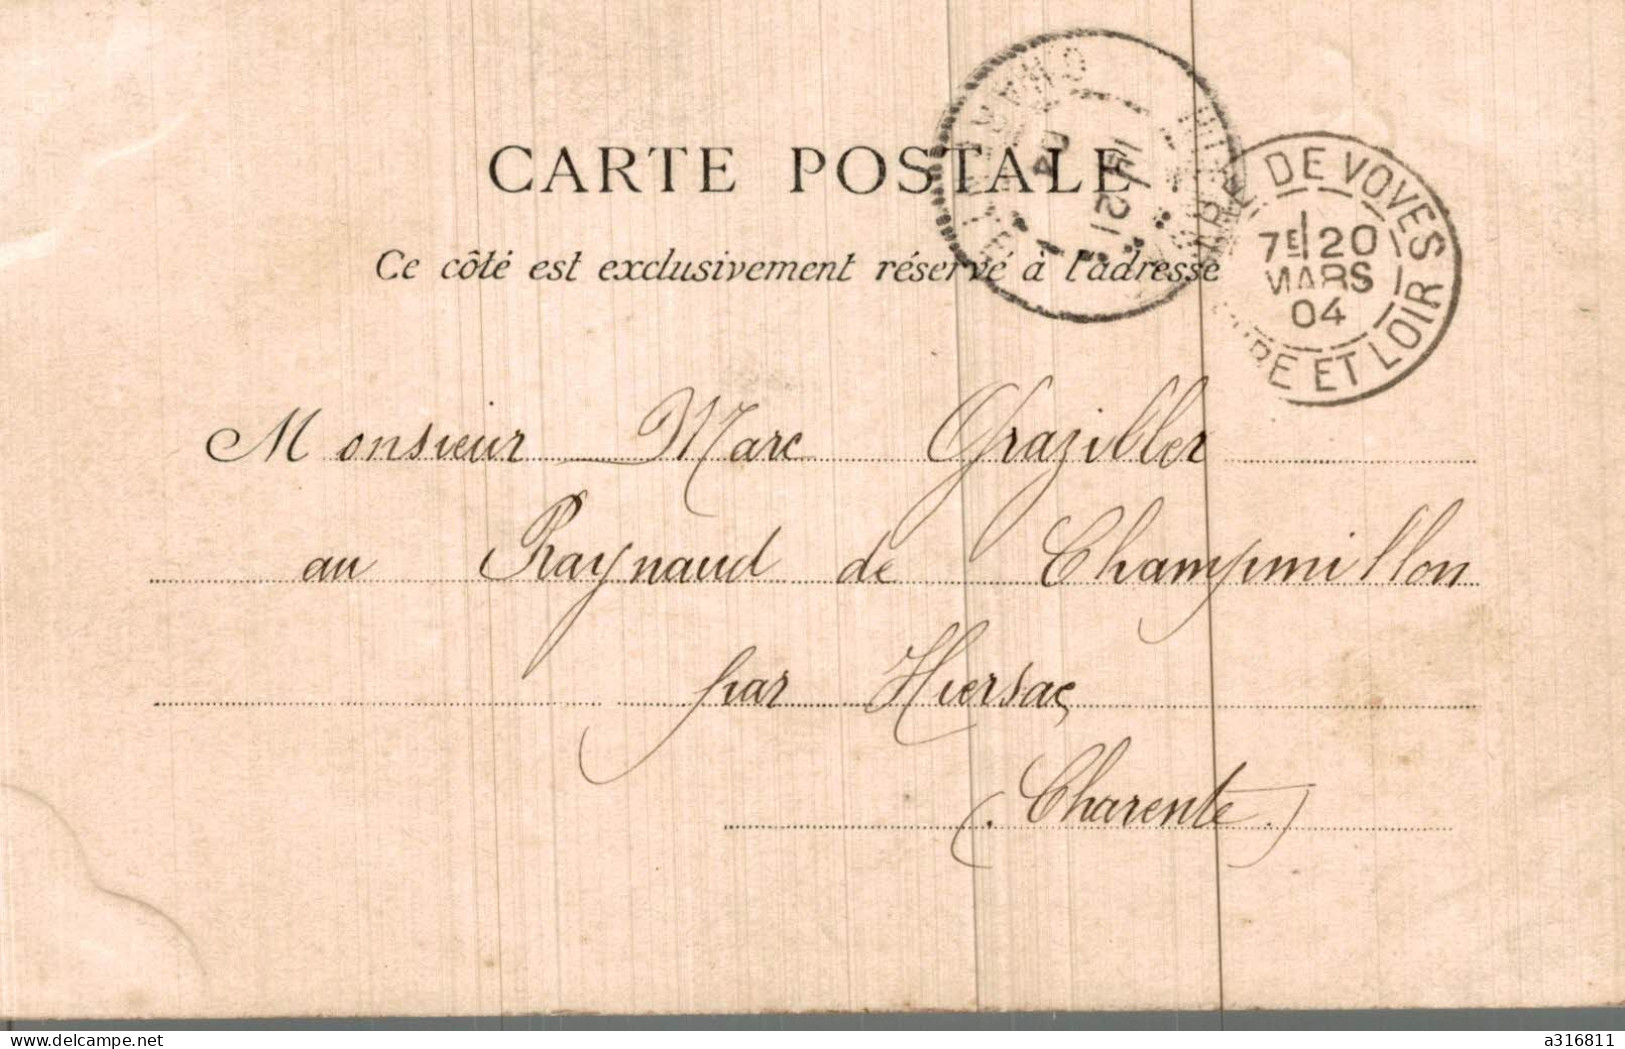 CARTE POSTALE
Ce côté est exclusivement réservé à l'adresse
CHARENTE
15 / 21
04
GARE DE VOYES
7E 20
MARS
04
EURE ET LOIR
Monsieur Marc Graziller
au Raynaud de Champmillon
par Hiersac
(Charente)
delcampe.net
a316811